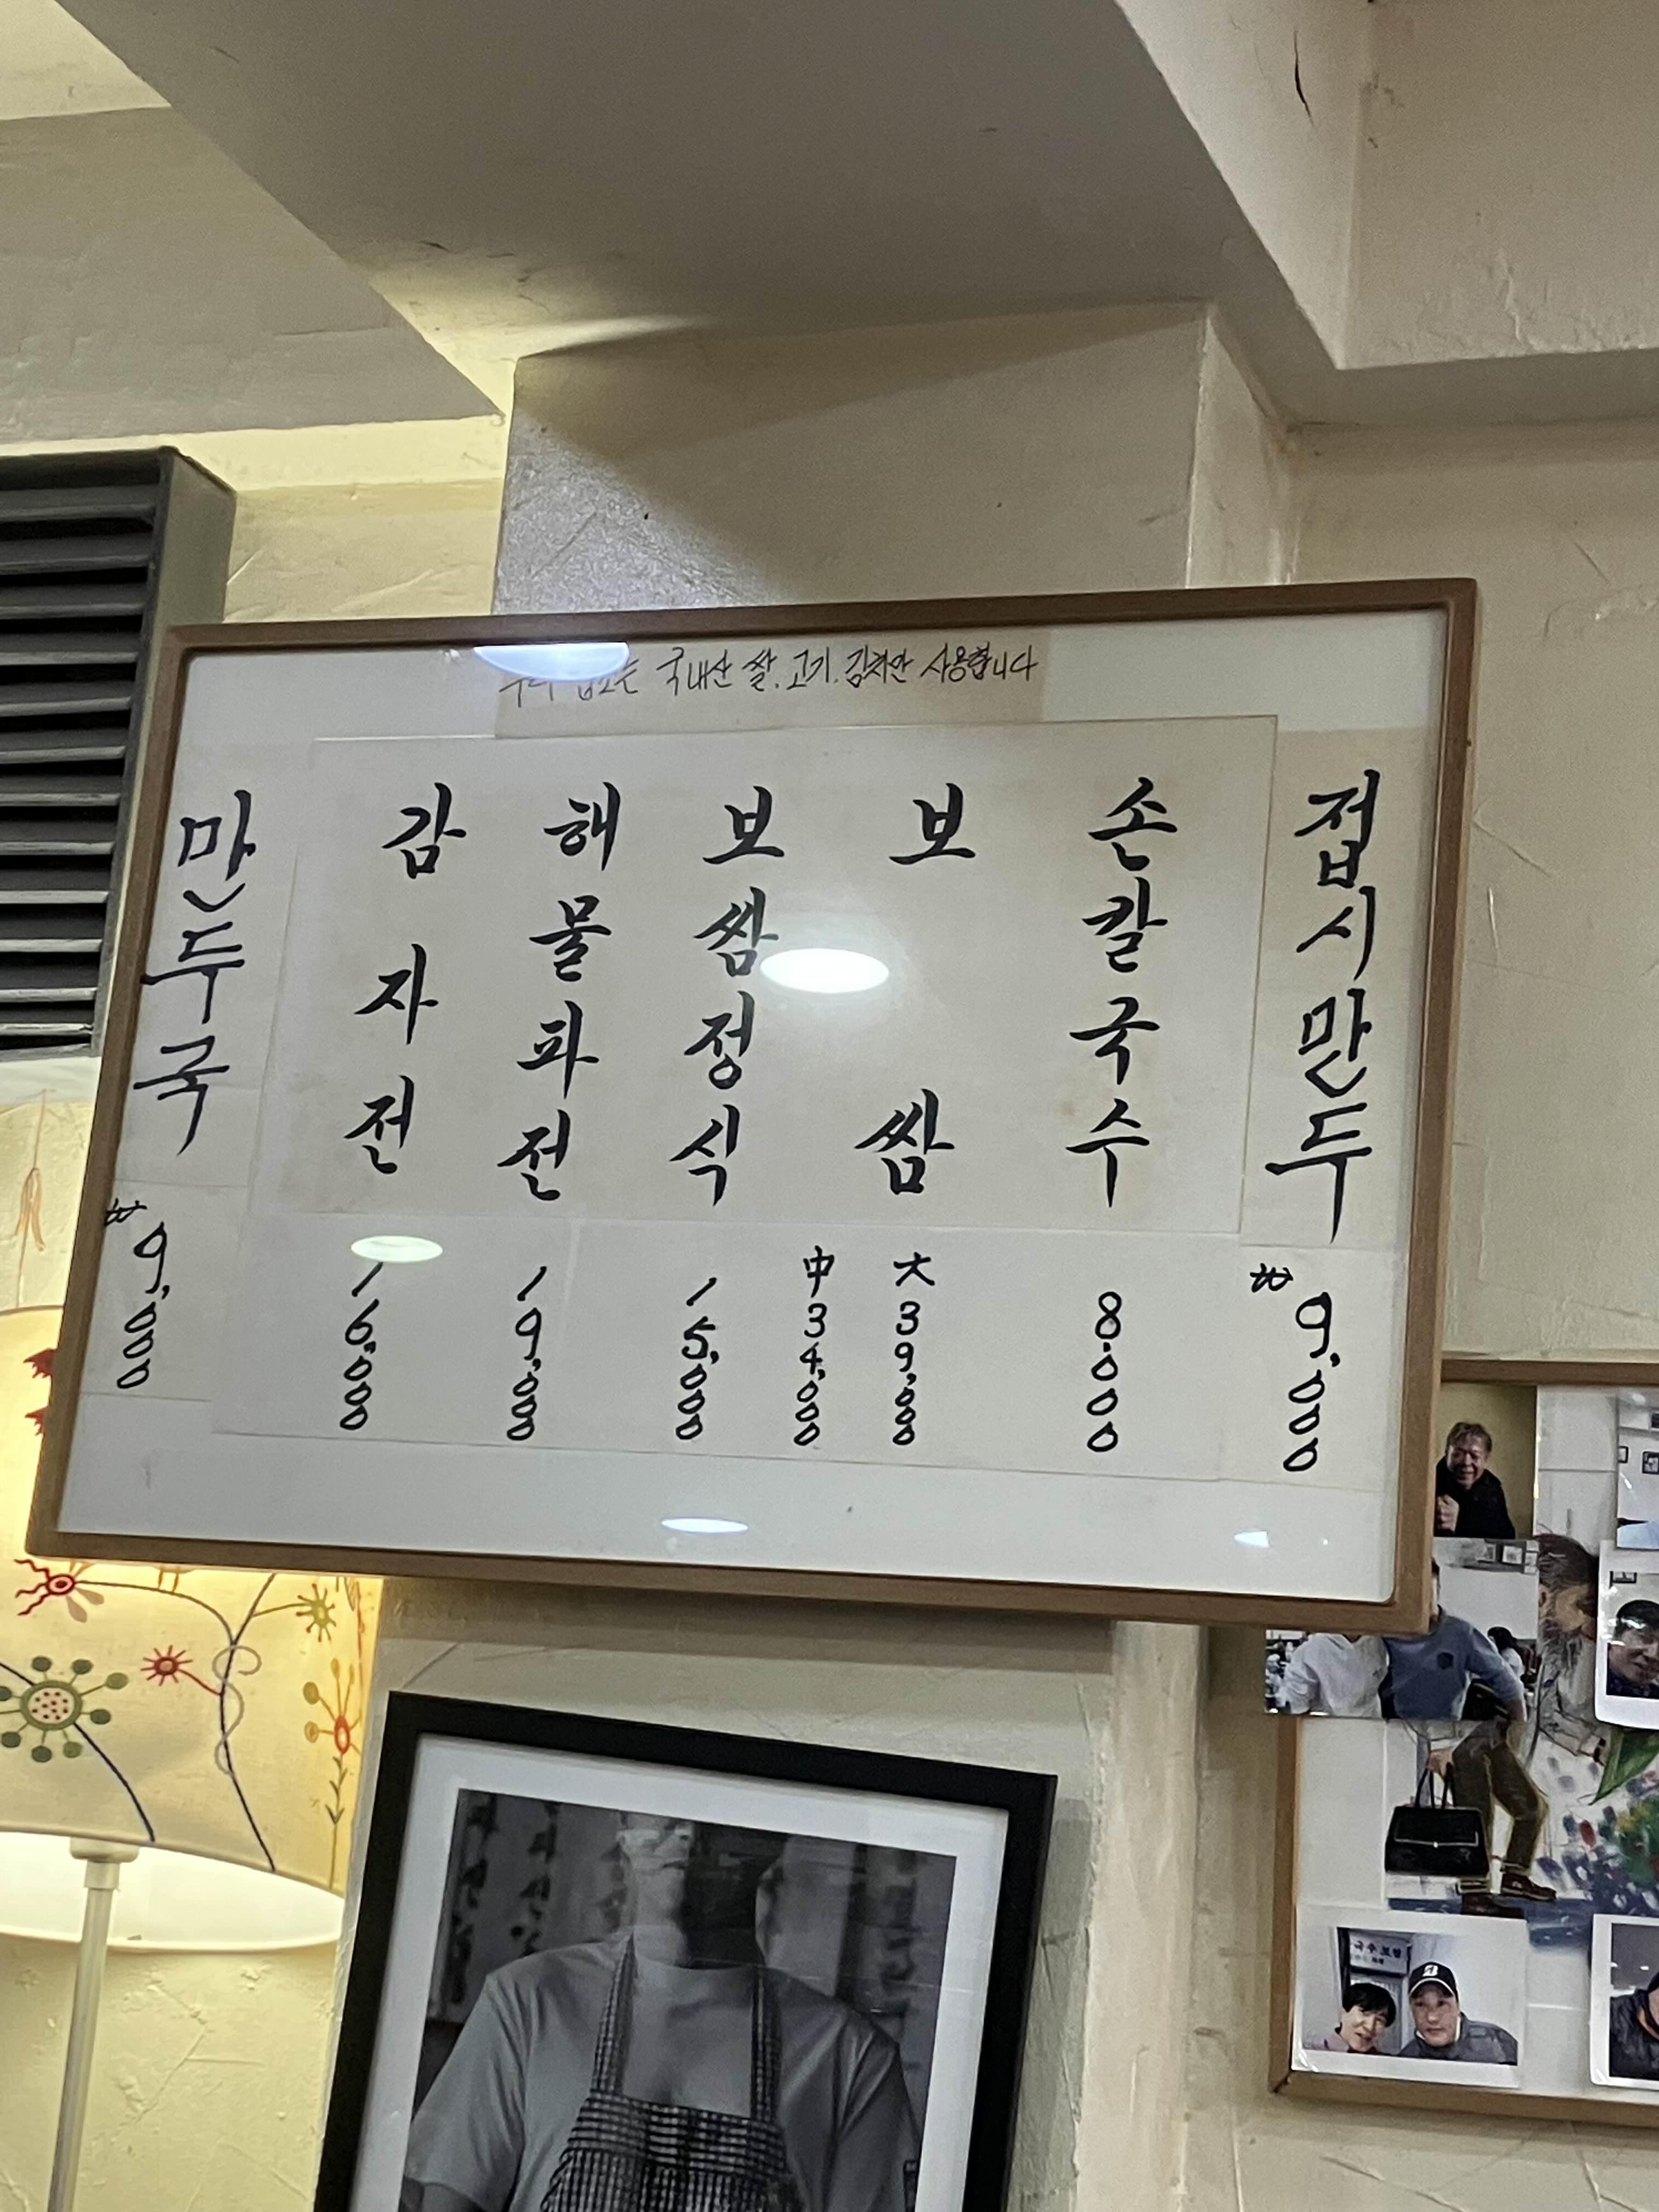 우리 업소는 국내산 쌀.고기.김치만 사용합니다
접시만두
₩9,000
손칼국수
8.000
보쌈
大39,000
中34,000
보쌈정식
15,000
해물파전
19,000
감자전
16,000
만두국
₩9,000